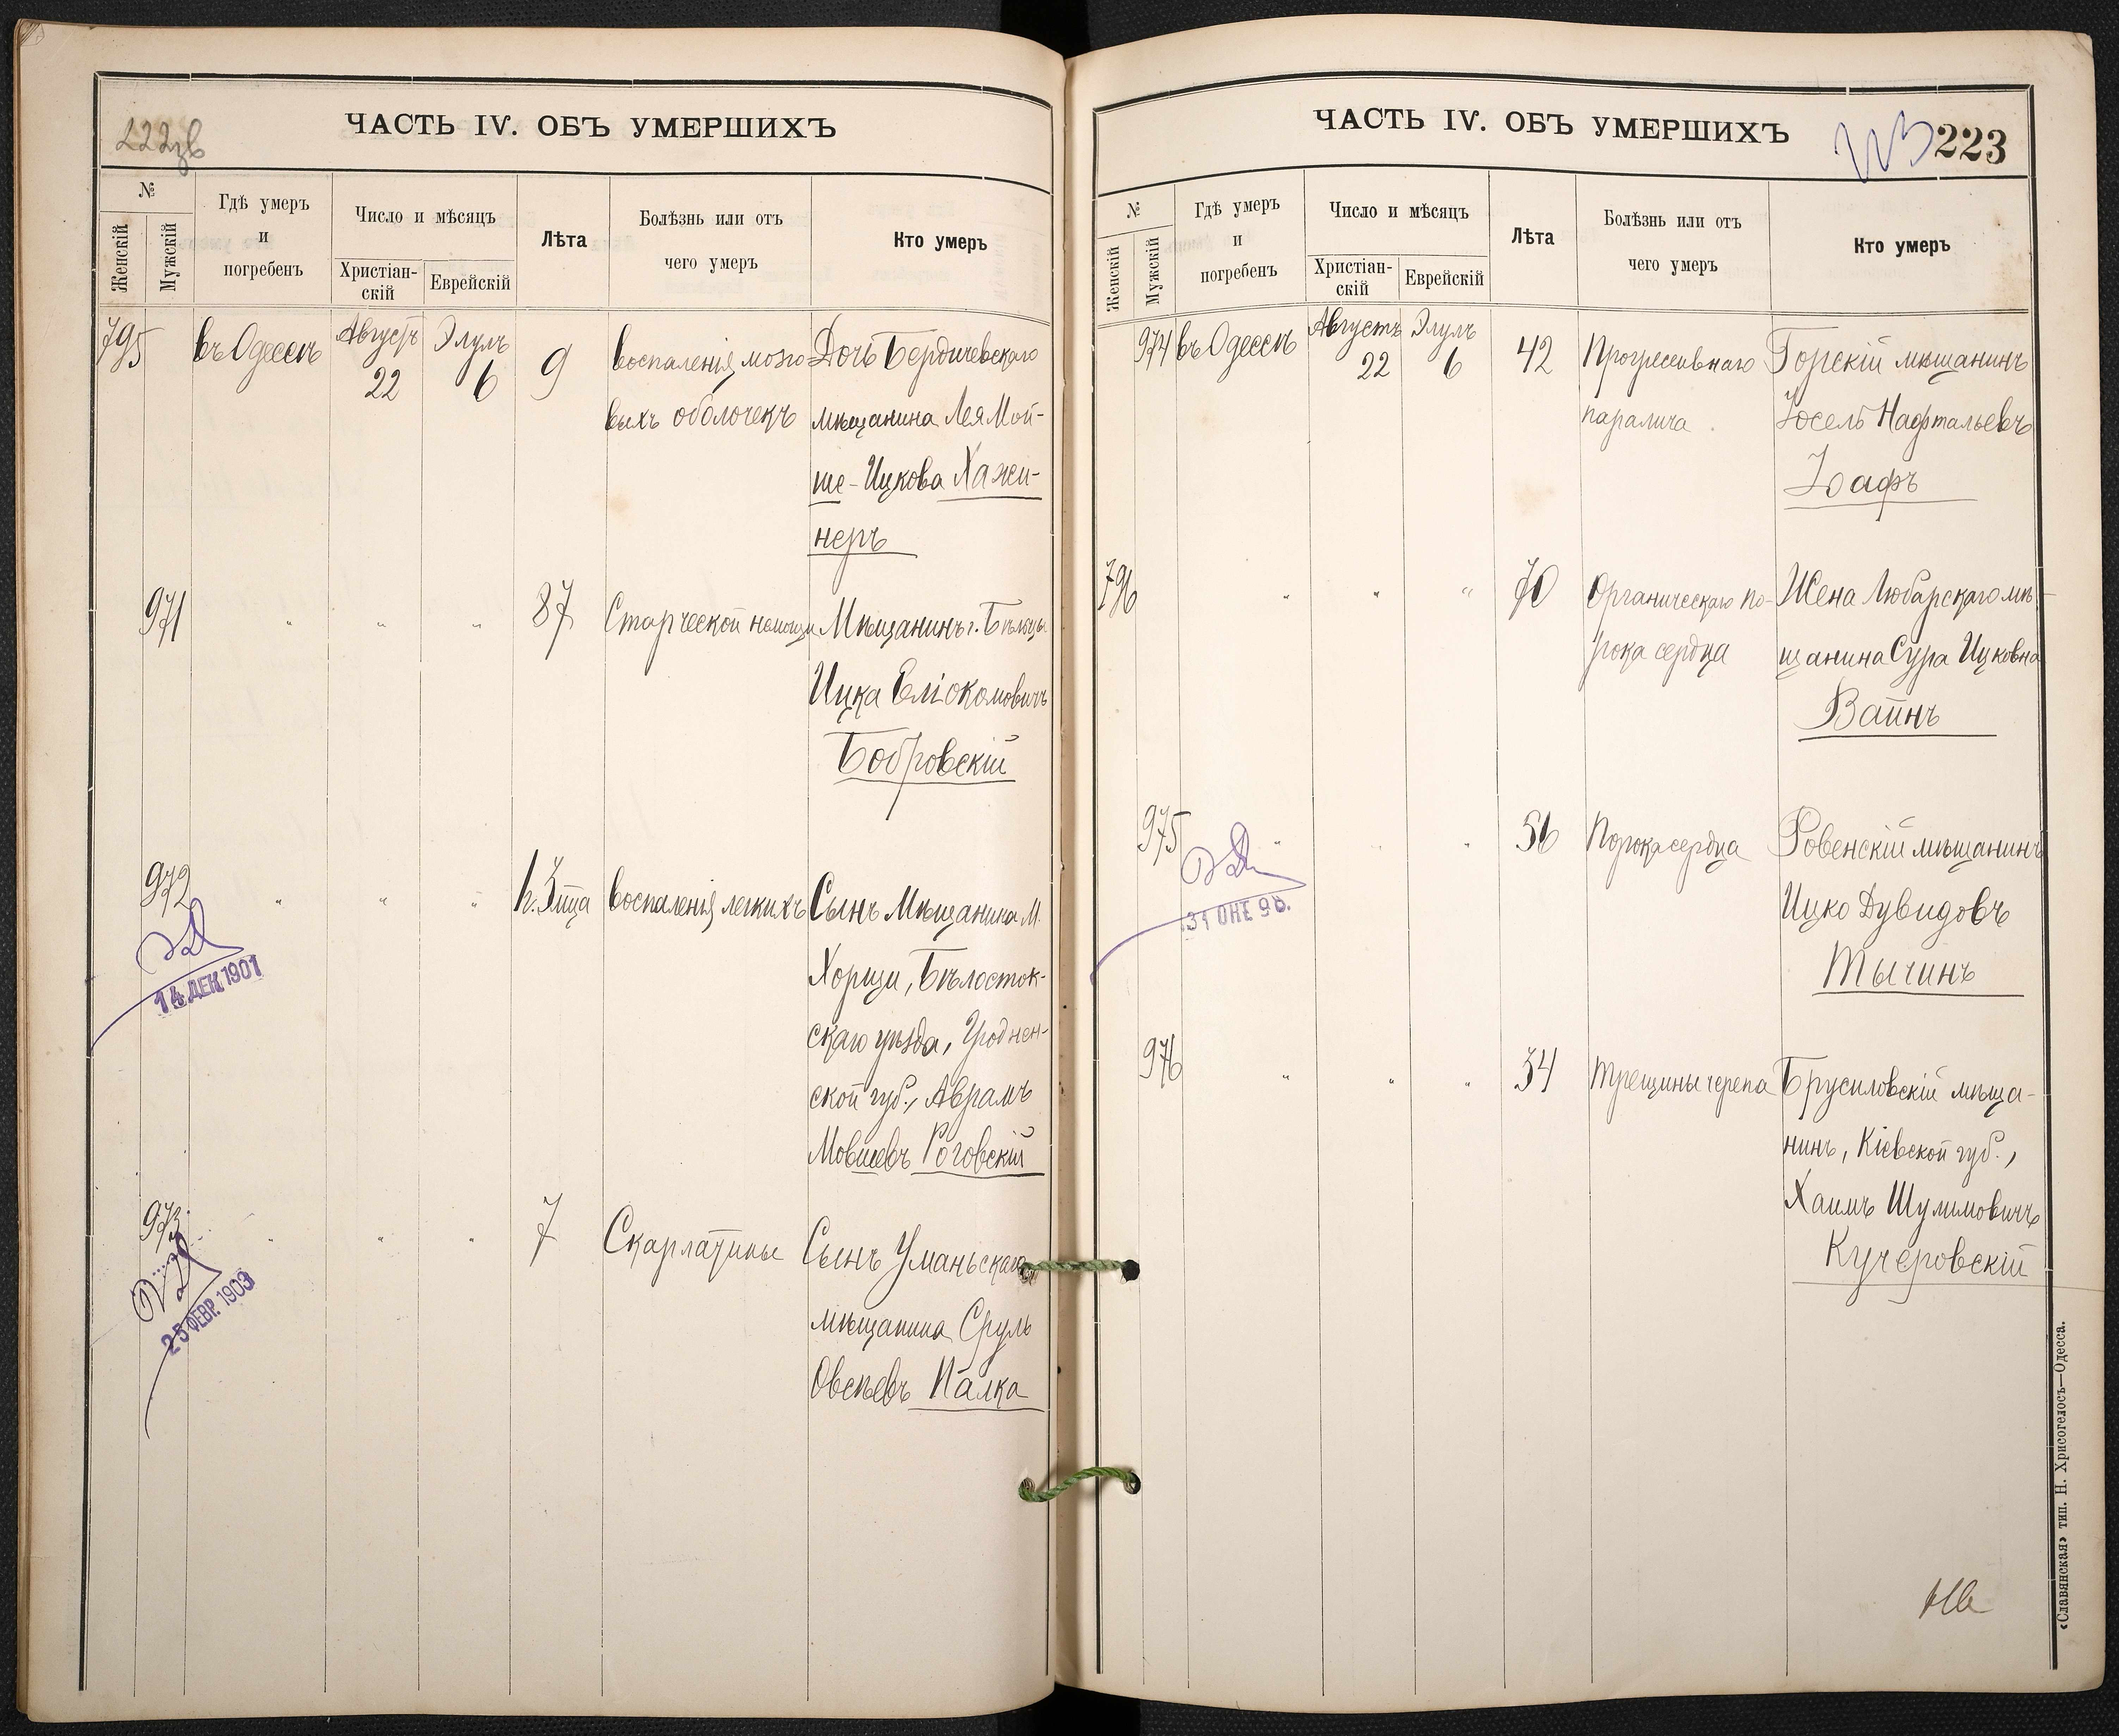 222об
ЧАСТЬ IV. ОБЪ УМЕРШИХЪ
№
Женскій
Мужскій
Гдѣ умеръ
и
погребенъ
Число и мѣсяцъ
Христіан-
скій
Еврейскій
Лѣта
Болѣзнь или отъ
чего умеръ
Кто умеръ
795 въ Одессѣ Августъ 22 Элулъ 6 9 воспаленія мозго- Дочь Бердичевскаго
выхъ оболочекъ мѣщанина Лея Мой-
ше-Ицкова Хажи-
неръ
971 " " " 87 Старческой немощи Мѣщанинъ г. Бѣльцы
Ицка
Бобровскій
972 " " " 3 м-ца воспаленія легкихъ Сынъ Мѣщанина М.
Хорощи, Бѣлосток-
скаго уѣзда, Гроднен-
ской губ., Аврамъ
Мовшевъ Роговскій
14 ДЕК 1901
973 " " " 7 Скарлатины Сынъ Уманьскаго
мѣщанина Сруль
Овсѣевъ Палка
25 ФЕВР. 1903
ЧАСТЬ IV. ОБЪ УМЕРШИХЪ
223
№
Женскій
Мужскій
Гдѣ умеръ
и
погребенъ
Число и мѣсяцъ
Христіан-
скій
Еврейскій
Лѣта
Болѣзнь или отъ
чего умеръ
Кто умеръ
974 въ Одессѣ Августъ 22 Элулъ 6 42 Прогрессивнаго Горскій мѣщанинъ
паралича Іосель Нафтальевъ
Іоафъ
796 " " " 70 Органическаго по- Жена Любарскаго мѣ-
рока сердца щанина Сура Ицковна
Вайнъ
975 " " " 56 Порока сердца Ровенскій мѣщанинъ
Ицко Дувидовъ
Тычинъ
976 " " " 34 Трещины черепа Брусиловскій мѣща-
нинъ, Кіевской губ.,
Хаимъ Шулимовичъ
Кучеровскій
«Славянская» тип. Н. Хрисогелосъ—Одесса.